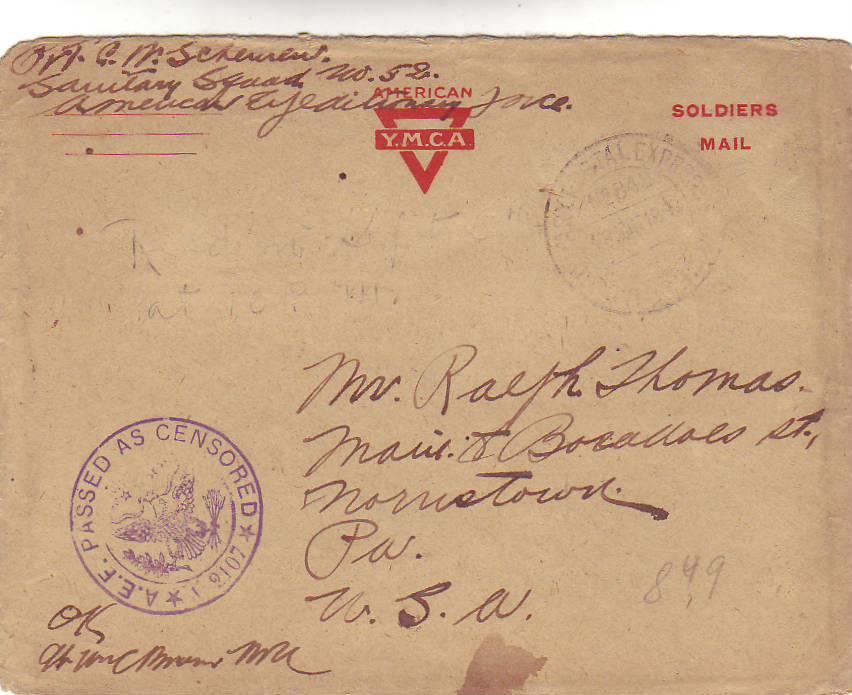 Pvt. C. W. Scheuren.
Sanitary Squad No. 52.
American Expeditionary Force.
AMERICAN
Y.M.C.A.
SOLDIERS
MAIL
POSTAL EXPRESS
842
at 12 P.M.
Mr. Ralph Thomas.
Main & St.,
Norristown.
Pa.
U. S. A.
A.E.F. PASSED AS CENSORED
849
OK